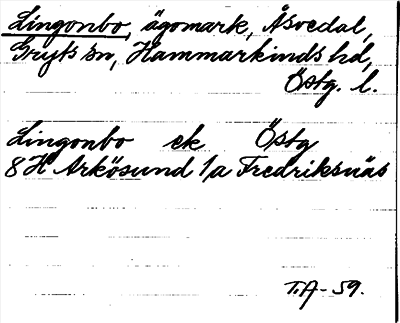 Lingonbo, ägomark, Åsvedal,
Gryts sn, Hammarkinds hd,
Östg. l.
Lingonbo ek Östg
8H Arkösund 1a Fredriksnäs
T.A-59.